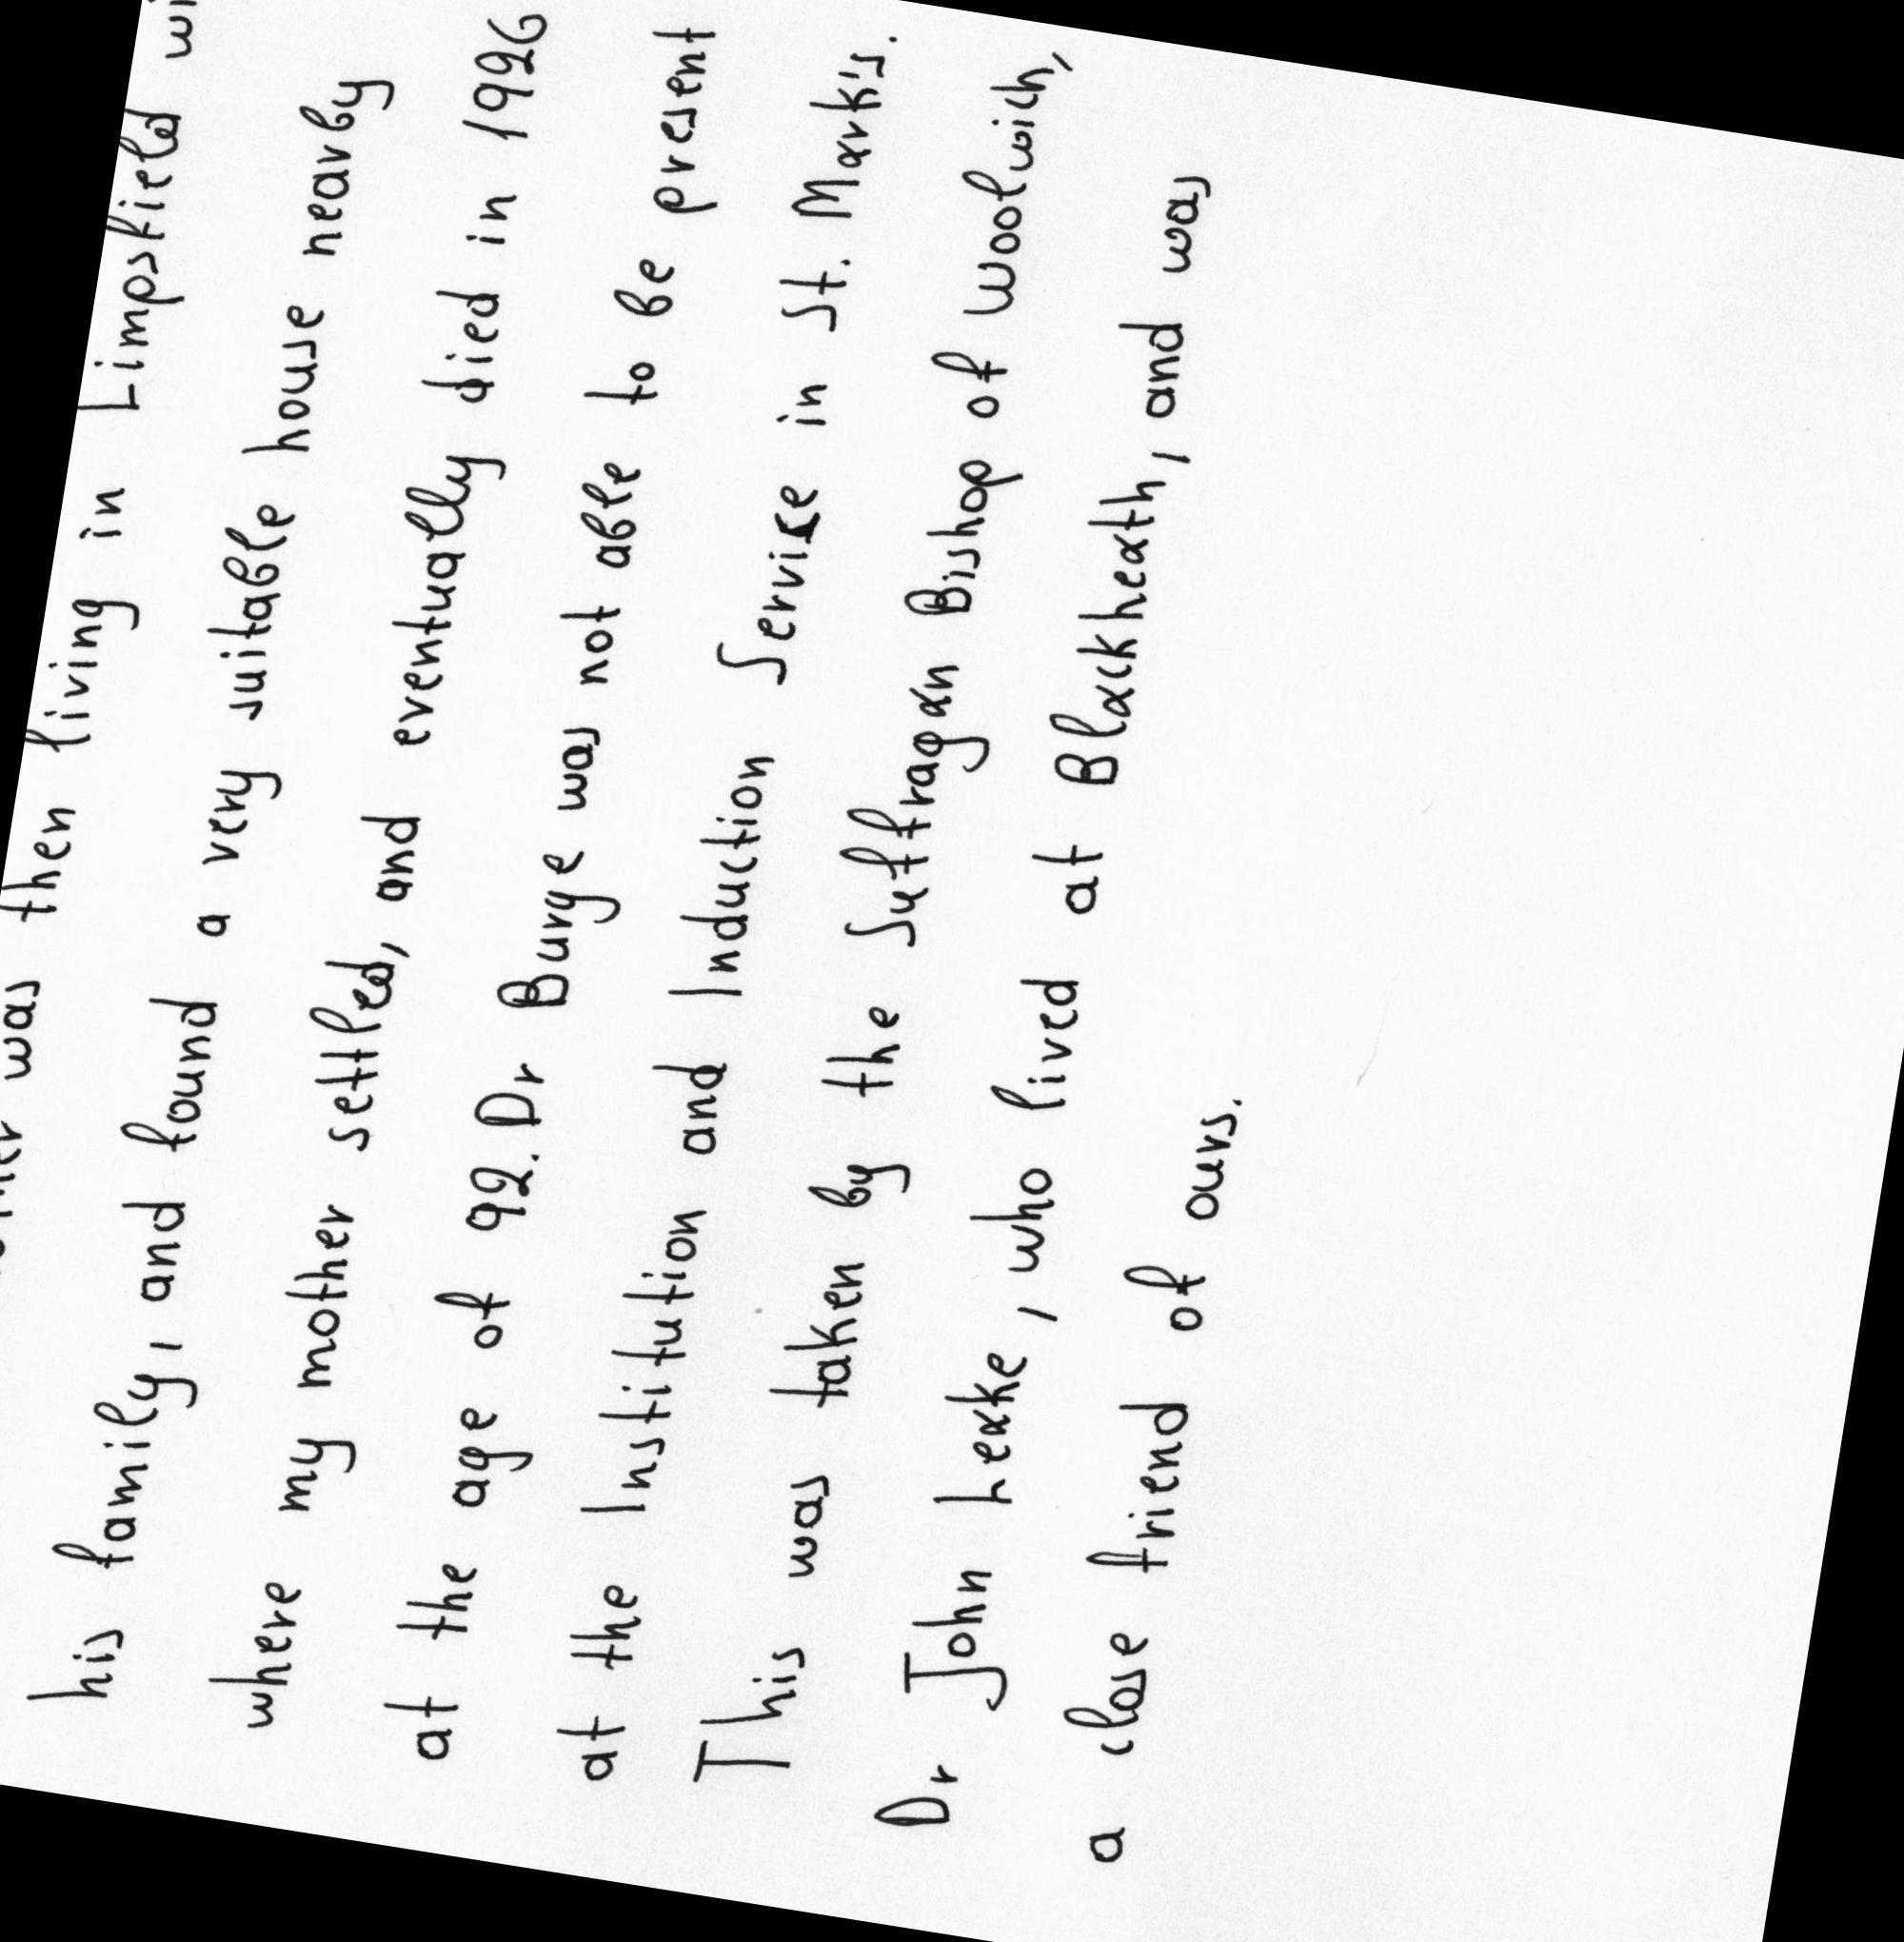 was then living in Limpsfield
his family, and found a very suitable house nearby
where my mother settled, and eventually died in 1926
at the age of 92. Dr Burge was not able to be present
at the Institution and Induction Service in St. Mark's.
This was taken by the Suffragan Bishop of Woolwich,
Dr John Leake, who lived at Blackheath, and was
a close friend of ours.